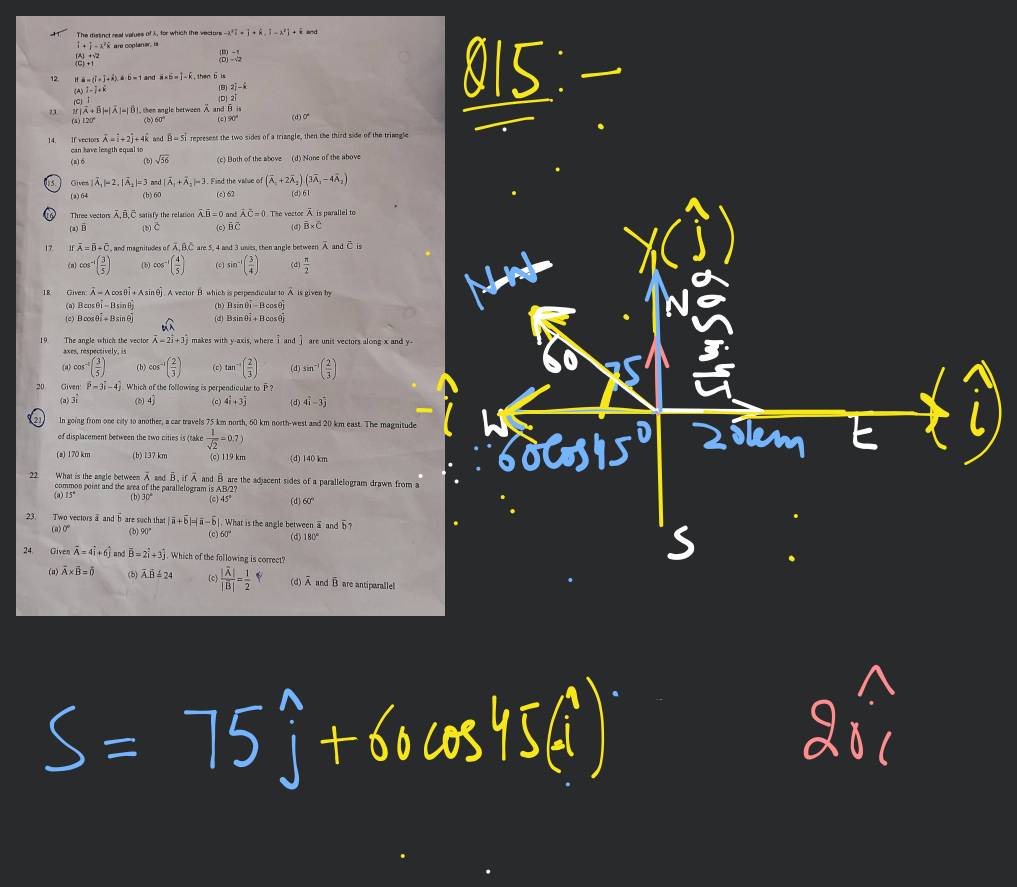 11. The distinct real values of λ, for which the vectors -λ²î + ĵ + k̂, î - λ²ĵ + k̂ and
î + ĵ - λ²k̂ are coplanar, is
(A) +√2 (B) -1
(C) +1 (D) -√2
12. If ā = (î + ĵ + k̂), ā·b̄ = 1 and ā×b̄ = ĵ - k̂, then b̄ is
(A) î - ĵ + k̂ (B) 2ĵ - k̂
(C) î (D) 2î
13. If |Ā + B̄| = |Ā| = |B̄|, then angle between Ā and B̄ is
(a) 120° (b) 60° (c) 90° (d) 0°
14. If vectors Ā = î + 2ĵ + 4k̂ and B̄ = 5î represent the two sides of a triangle, then the third side of the triangle
can have length equal to
(a) 6 (b) √56 (c) Both of the above (d) None of the above
15. Given |Ā₁| = 2, |Ā₂| = 3 and |Ā₁ + Ā₂| = 3. Find the value of (Ā₁ + 2Ā₂).(3Ā₁ - 4Ā₂)
(a) 64 (b) 60 (c) 62 (d) 61
16. Three vectors Ā, B̄, C̄ satisfy the relation Ā.B̄ = 0 and Ā.C̄ = 0. The vector Ā is parallel to
(a) B̄ (b) C̄ (c) B̄.C̄ (d) B̄ × C̄
17. If Ā = B̄ + C̄, and magnitudes of Ā, B̄, C̄ are 5, 4 and 3 units, then angle between Ā and C̄ is
(a) cos⁻¹(3/5) (b) cos⁻¹(4/5) (c) sin⁻¹(3/4) (d) π/2
18. Given: Ā = A cos θî + A sin θĵ. A vector B̄ which is perpendicular to Ā is given by
(a) B cos θî - B sin θĵ (b) B sin θî - B cos θĵ
(c) B cos θî + B sin θĵ (d) B sin θî + B cos θĵ
19. The angle which the vector Ā = 2î + 3ĵ makes with y-axis, where î and ĵ are unit vectors along x and y-
axes, respectively, is
(a) cos⁻¹(3/5) (b) cos⁻¹(2/3) (c) tan⁻¹(2/3) (d) sin⁻¹(2/3)
20. Given: P̄ = 3î - 4ĵ. Which of the following is perpendicular to P̄?
(a) 3î (b) 4ĵ (c) 4î + 3ĵ (d) 4î - 3ĵ
21. In going from one city to another, a car travels 75 km north, 60 km north-west and 20 km east. The magnitude
of displacement between the two cities is (take 1/√2 = 0.7)
(a) 170 km (b) 137 km (c) 119 km (d) 140 km
22. What is the angle between Ā and B̄, if Ā and B̄ are the adjacent sides of a parallelogram drawn from a
common point and the area of the parallelogram is AB/2?
(a) 15° (b) 30° (c) 45° (d) 60°
23. Two vectors ā and b̄ are such that |ā + b̄| = |ā - b̄|. What is the angle between ā and b̄?
(a) 0° (b) 90° (c) 60° (d) 180°
24. Given Ā = 4î + 6ĵ and B̄ = 2î + 3ĵ. Which of the following is correct?
(a) Ā × B̄ = 0̄ (b) Ā.B̄ = 24 (c) |Ā|/|B̄| = 1/2 (d) Ā and B̄ are antiparallel
Q15:-
Y(ĵ)
NW
N
60sin45
60
75
-î
W
60cos45°
20km
E
X(î)
S
S = 75ĵ + 60cos45(-î)
20î